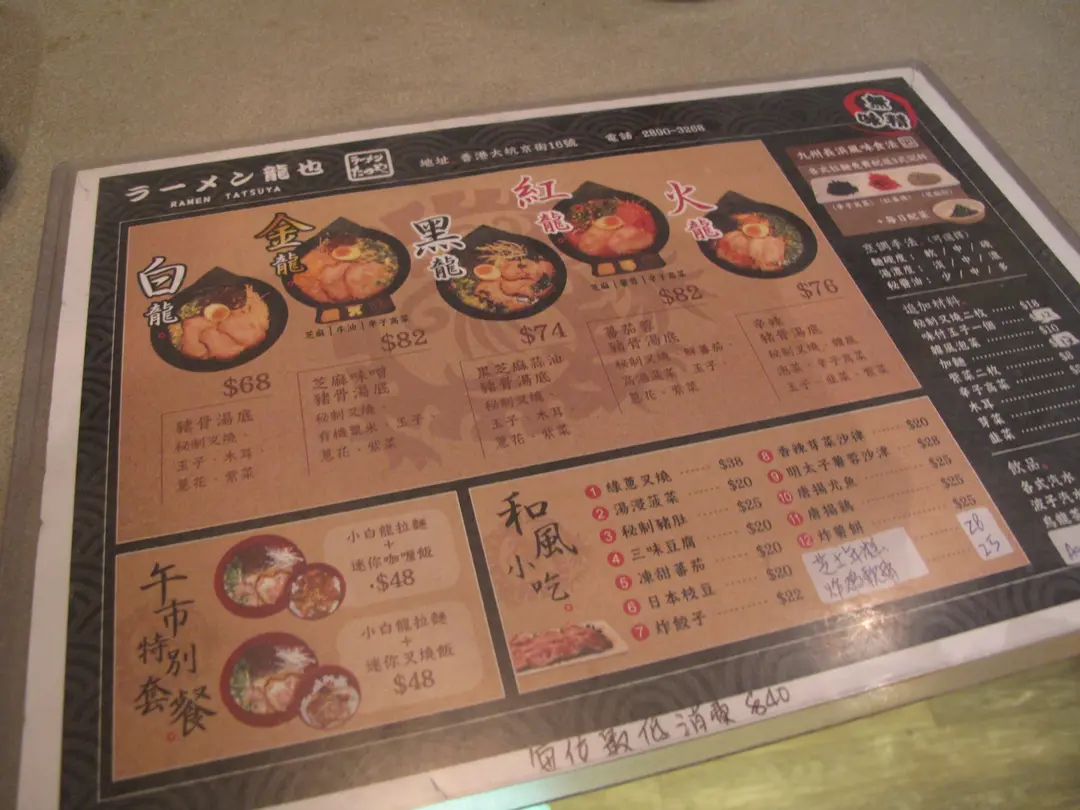 ラーメン龍也
ラーメン
たつや
RAMEN TATSUYA
地址 香港大坑京街16號
電話 2890-3268
無
味精
白龍
$68
豬骨湯底
秘制叉燒、
玉子、木耳
蔥花、紫菜
金龍
芝麻|牛油|辛子高菜
$82
芝麻味噌
豬骨湯底
秘制叉燒、
有機粟米、玉子
蔥花、紫菜
黑龍
$74
黑芝麻蒜油
豬骨湯底
秘制叉燒、
玉子、木耳
蔥花、紫菜
紅龍
$82
蕃茄醬
豬骨湯底
秘制叉燒、鮮蕃茄、
玉子、
蔥花、紫菜
火龍
$76
辛辣
豬骨湯底
秘制叉燒、韓風
泡菜、辛子高菜
玉子、韭菜、紫菜
九州長浜風味食法
+每日紀菜
烹調手法(可選擇)
麵硬度：軟/中/硬
湯濃度：淡/中/濃
秘醬油：少/中/多
追加材料
秘制叉燒二枚 $18
味付玉子一個
韓風泡菜 $10
加麵
紫菜二枚 $8
辛子高菜
木耳
韭菜
飲品
各式汽水
波子汽水
烏龍茶
午市特別套餐
小白龍拉麵
+
迷你咖喱飯
$48
小白龍拉麵
+
迷你叉燒飯
$48
和風小吃
1 綠蔥叉燒 $38
2 湯漫菠菜 $20
3 秘制豬肚 $25
4 三味豆腐 $20
5 凍甜蕃茄 $20
6 日本枝豆 $20
7 炸餃子 $22
8 香辣芽菜沙律 $20
9 明太子薯蓉沙律 $28
10 唐揚尤魚 $25
11 唐揚鷄 $25
12 炸薯餅 $25
芝士年糕 28
25
每位最低消費 $40